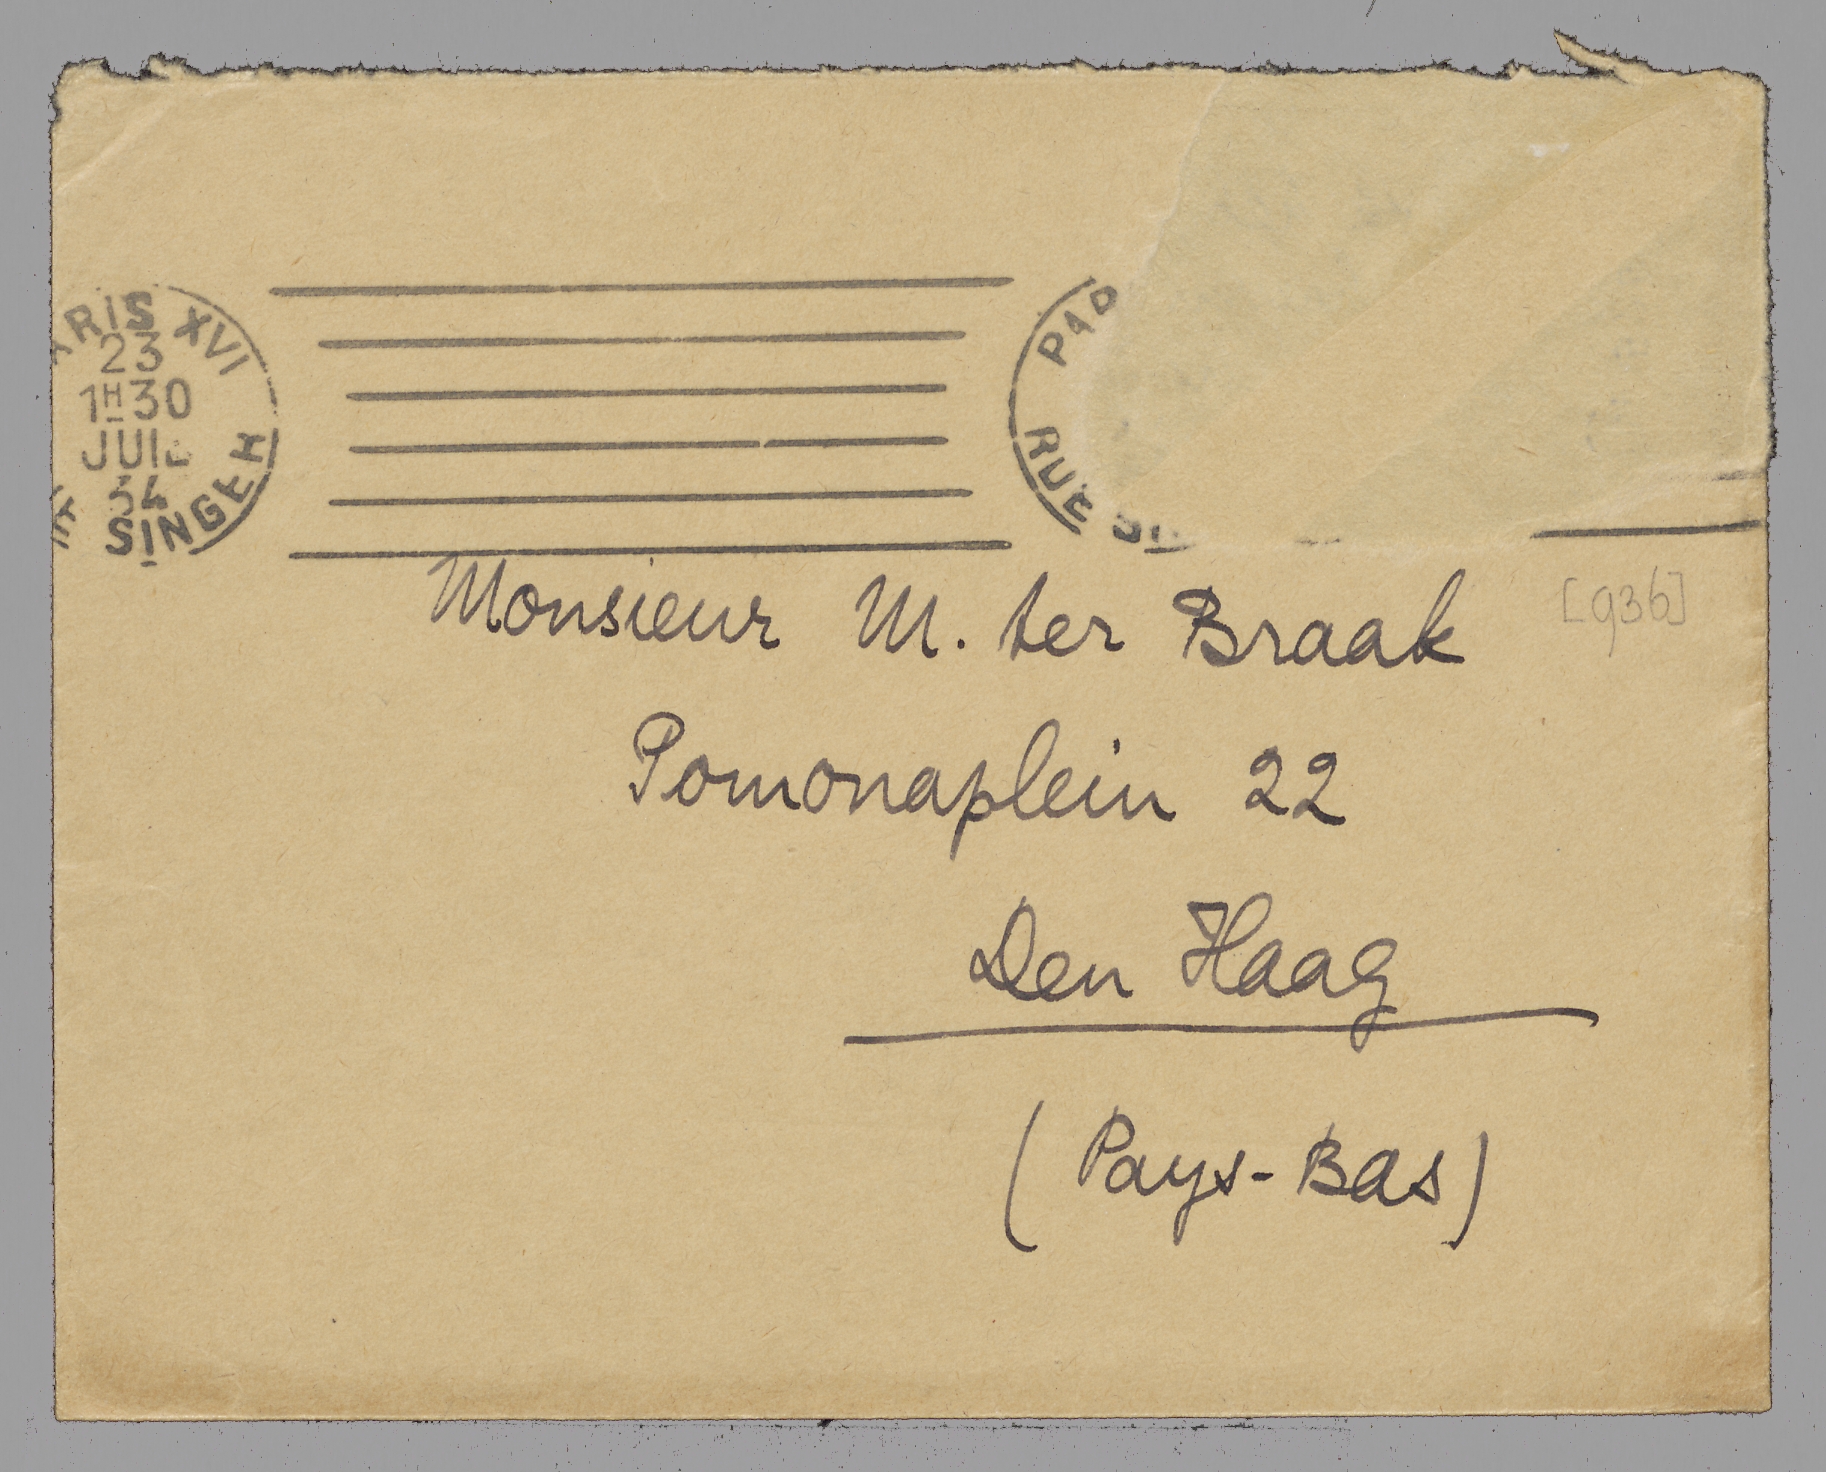 PARIS XVI
23
1H30
JUIL
34
RUE SINGER
PAR
RUE SI
Monsieur M. ter Braak
[936]
Pomonaplein 22
Den Haag
(Pays-Bas)